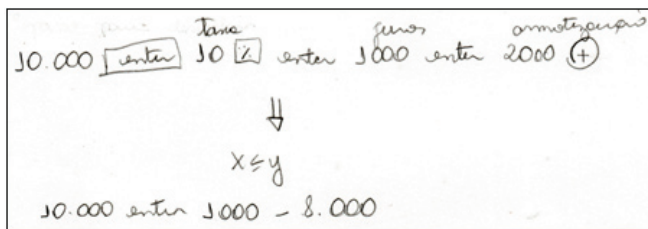 taxa juros amortização
10.000 enter 10 % enter 1000 enter 2000 +
x ≤ y
10.000 enter 1000 - 8.000